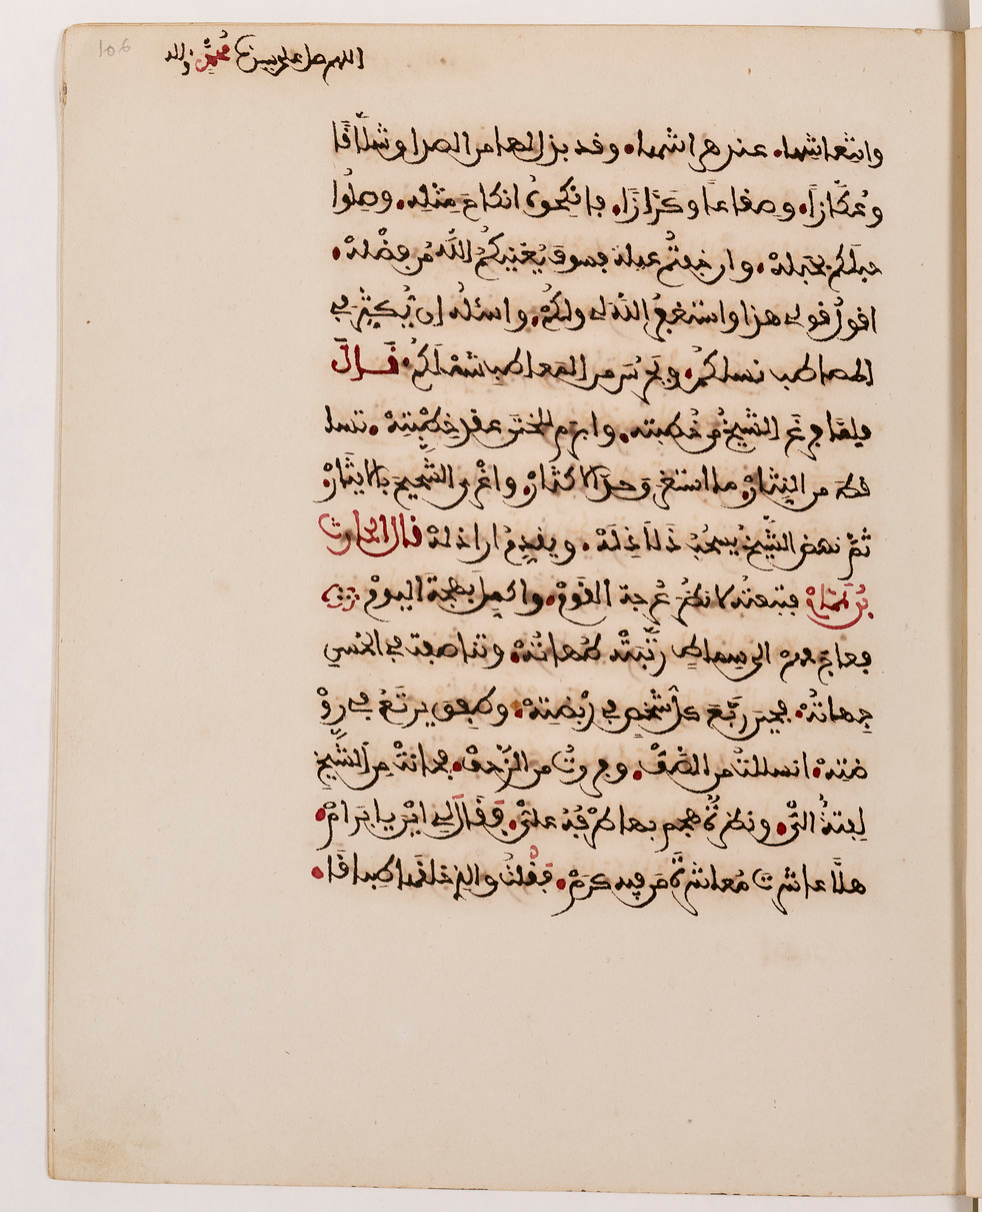 106
اللهم صل على سيدنا محمد وآله
وانتعاشها. عند هراشها. وقد بذل لها من الصداق شلّاقا
وعُكّازاً. وصقاعا وكَرّازاً. فانكحوهُ انكاحَ مِثله. وصِلُوا
حبلكم بحبلهْ. وان خِفتُم عيلة فسوف يُغنيكمُ اللَّهُ من فضْلهْ.
اقولُ قولي هذا واستغفرُ اللّه لي ولكمْ. واسئلهُ ان يُكثِّر في
المصاطب نسلكمُ. ويحرُس من المعاطب شمْلَكمُ. قال
فلما فرغَ الشيخُ من خُطبته. وابرم للختن عقد خِطْبتِهْ. تسا
قط من النِثارْ. ما استغرق حدّ الاكثارْ. واغْرى الشّحيحَ بالايثارْ.
ثمّ نهض الشّيخُ يسحبُ ذَلاذِلَهْ. ويقدِمُ اراذلهْ قال الحارث
بنُ همّامْ فتبعتُه لانظرَ عُرجة القومْ. واكمِل بهجة اليومْ
فعاج بهمْ الى سِماطٍ زيّنتْه طُهاتُهْ. وتناصفت في الحسنِ
جِهاتُهْ. فحِين ربَّعَ كلّ شخصٍ في رِبْضتِهْ. وطفِق يرتَعُ في روْ
ضتِهْ. انسللتُ من الصّفّْ. وفررتُ من الزّحفْ. فحانتْ مِن الشّيخ
لِفتةٌ اليّْ. ونظرةٌ هجم بها طرْفهُ عليّْ. فَقَالَ لي اين يا بَرَامْ.
هلّا عاشرتَ مُعاشرةَ مَن فيه كرَمْ. فقُلتُ والذي خلقها طِباقَا.